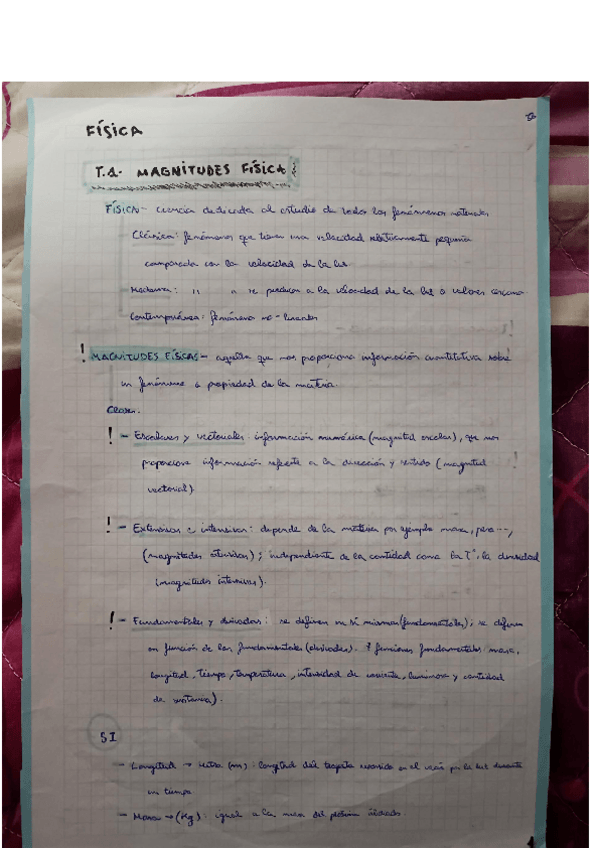 FÍSICA
T.1- MAGNITUDES FÍSICA
FÍSICA- ciencia dedicada al estudio de todos los fenómenos materiales
Clásica: fenómenos que tienen una velocidad relativamente pequeña
comparada con la velocidad de la luz
Moderna: " " se producen a la velocidad de la luz o valores cercano
Contemporánea: fenómeno no-lineales
! MAGNITUDES FÍSICAS- aquella que nos proporciona información cuantitativa sobre
un fenómeno o propiedad de la materia.
Clases.
! - Escalares y vectoriales: información numérica (magnitud escalar), que nos
proporciona información referente a la dirección y sentido (magnitud
vectorial)
! - Extensivas e intensivas: depende de la materia por ejemplo masa, peso...,
(magnitudes extensivas); independiente de la cantidad como la Tª, la densidad
(magnitudes intensivas).
! - Fundamentales y derivadas: se definen en sí mismas (fundamentales); se definen
en función de las fundamentales (derivadas). 7 funciones fundamentales masa,
longitud, tiempo, temperatura, intensidad de corriente, luminosa y cantidad
de sustancia).
SI
- Longitud → metro (m): longitud del trayecto recorrido en el vacío por la luz durante
un tiempo
- Masa → (Kg): igual a la masa del platino